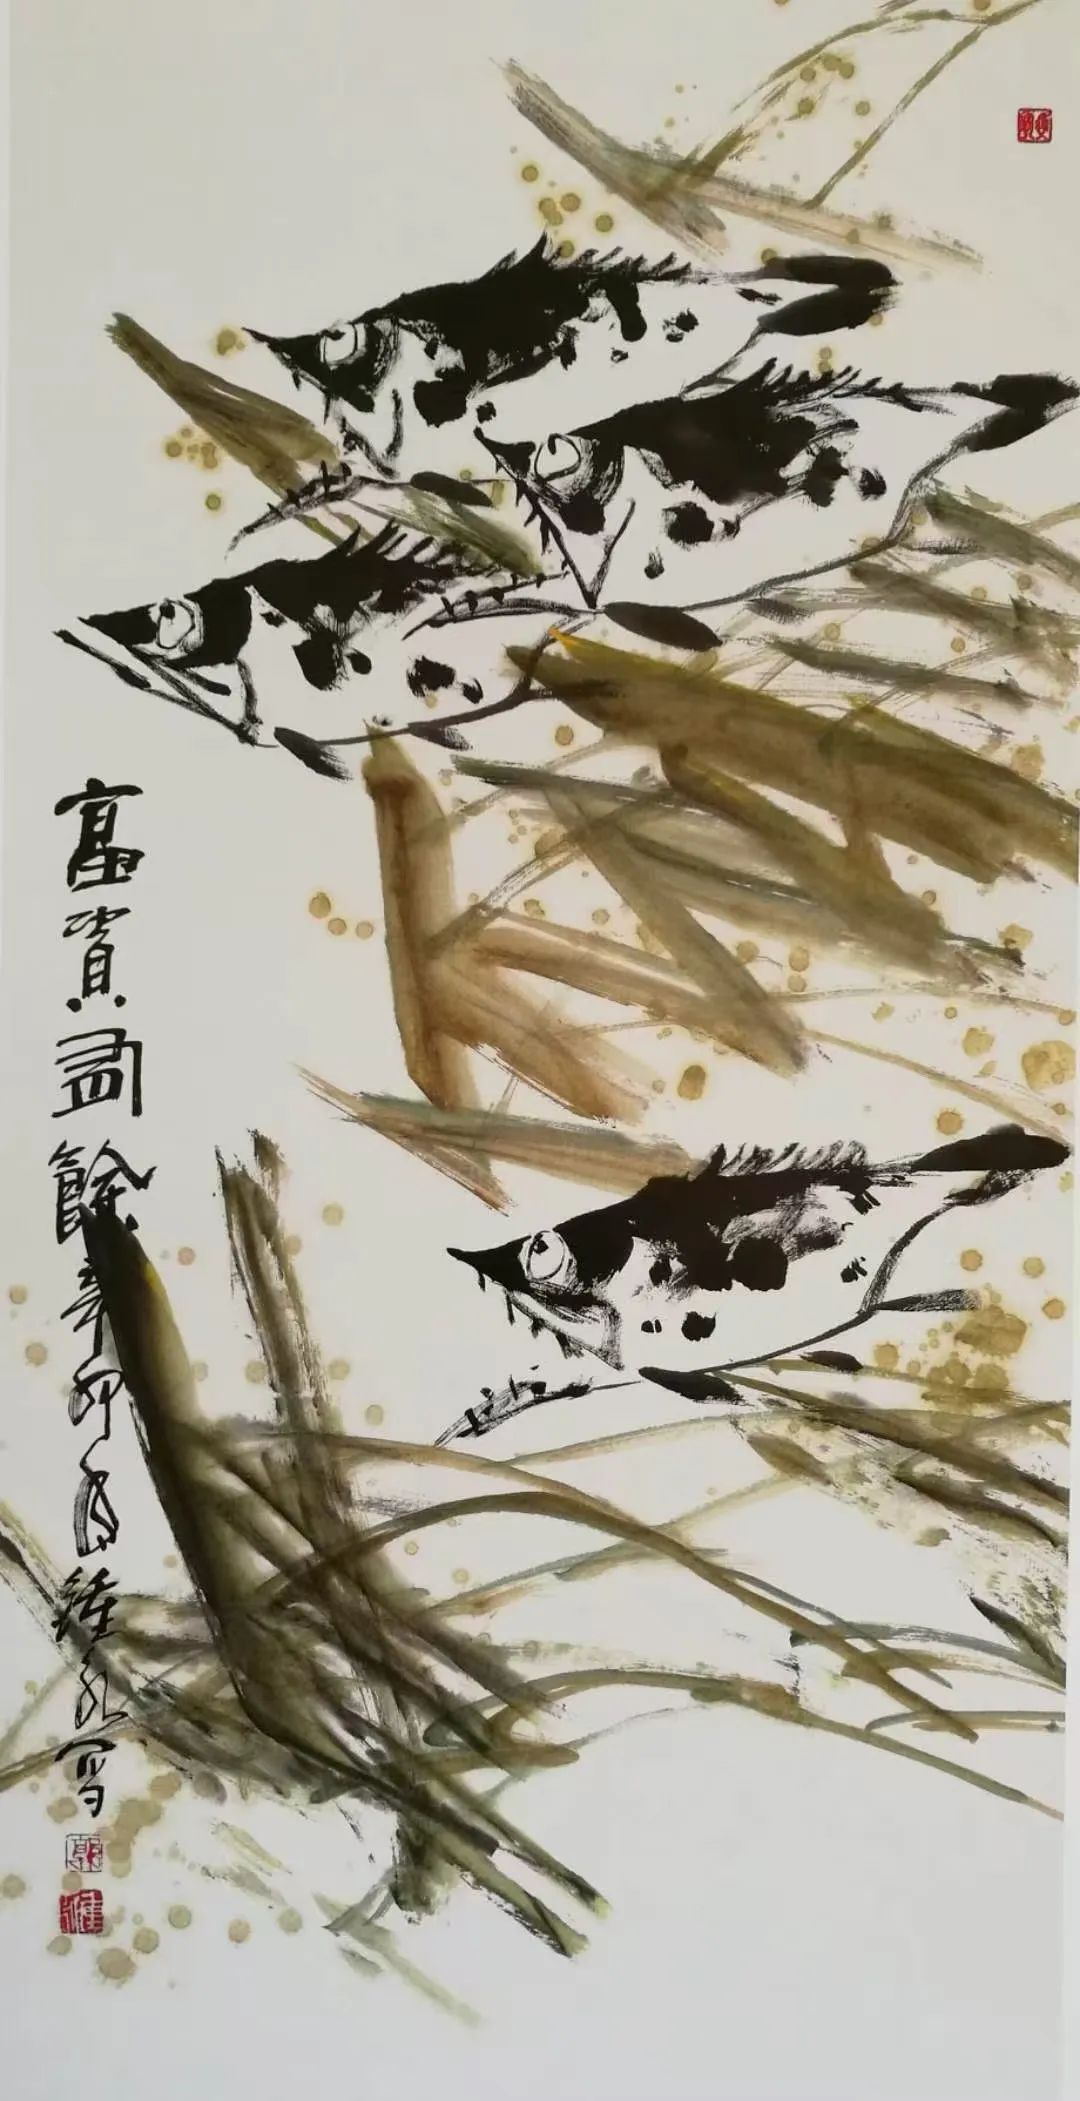 富貴有餘辛卯鍾寫